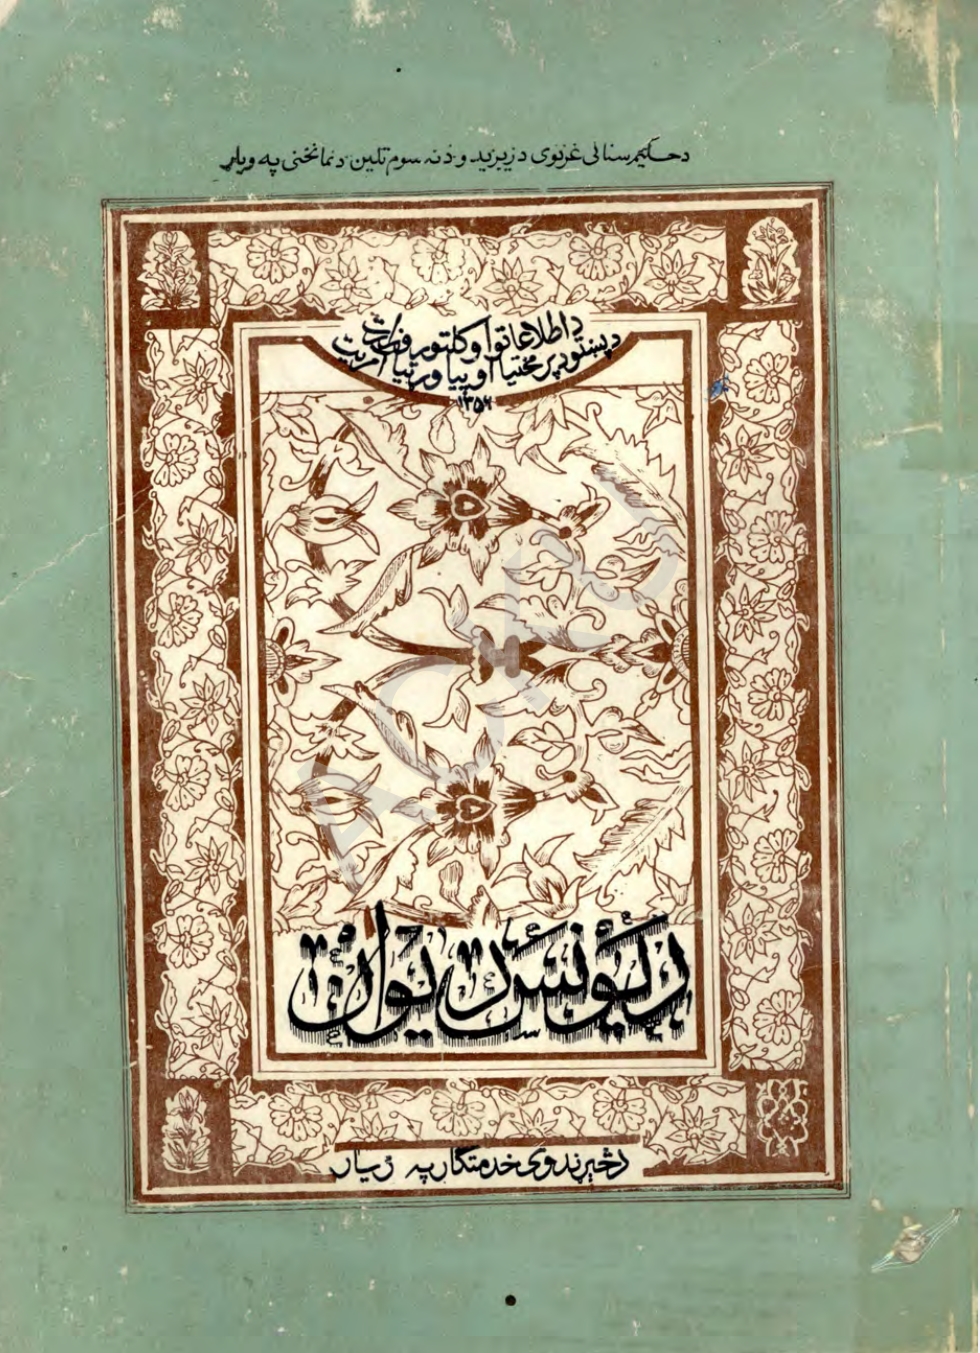 د حکیم سنائی غزنوی د زیږیدو د نه سوم تلین د نمانځنې په ویاړ
د اطلاعاتو او کلتور وزارت
د پښتو د پرمختیا او بیاورتیا آمریت
۱۳۵۶
د یونس دیوان
د خیرندوی خدمتگار په زیار
ACKU